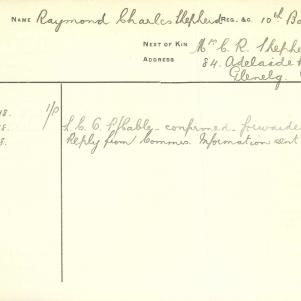 NAME Raymond Charles Shepherd REG. &C. 10th Ba
NEXT OF KIN Mr C. R. Shephe
ADDRESS 84. Adelaide
Glenelg.
18. 1/P
8. S. C. O. Cable - confirmed - forwarde
8. Reply from Commes. Information sent